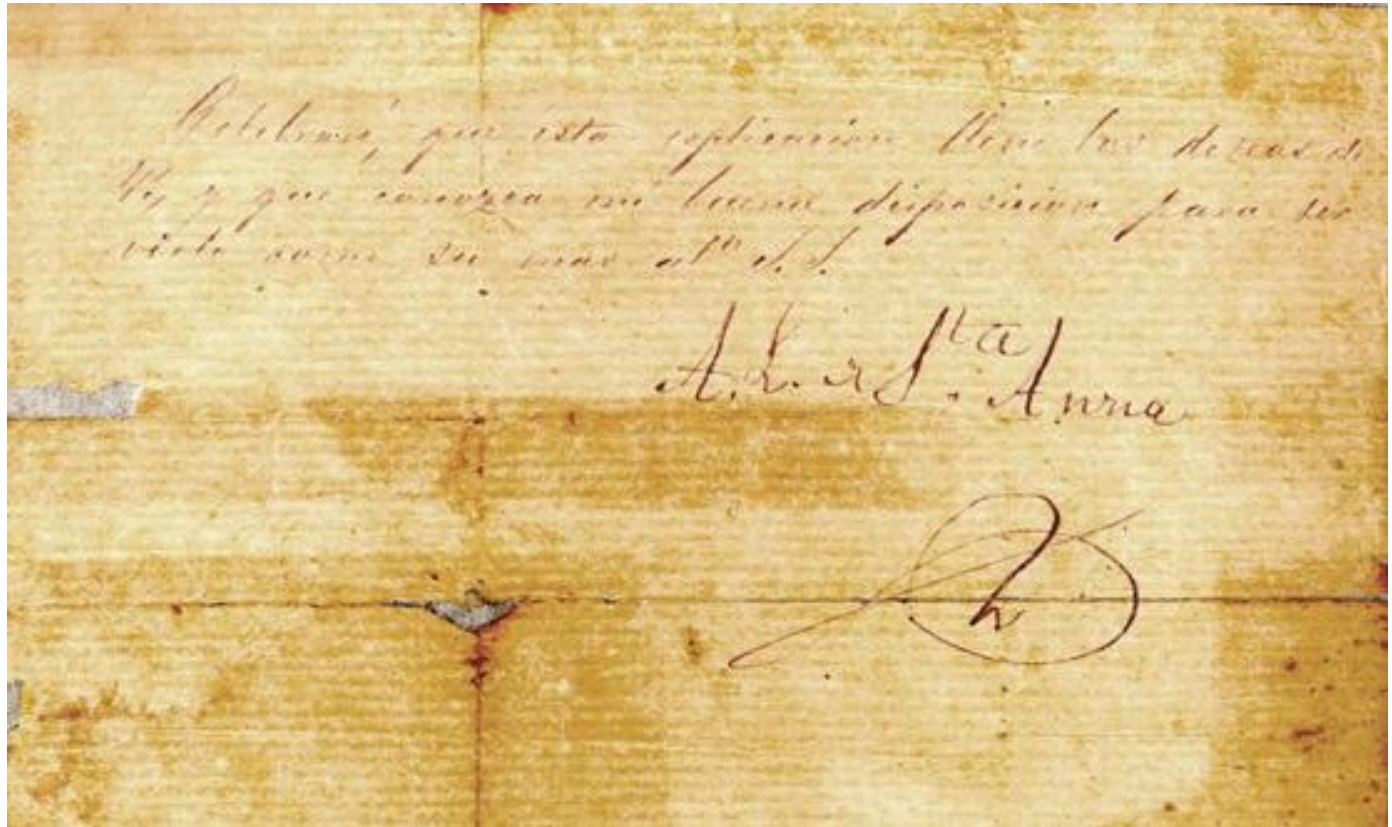 Celebraré, que esta esplicacion llene los deseos de
V., y que conozca mi buena disposicion para ser
virle como su mas at.º S. S.
A. L. de S.ta Anna